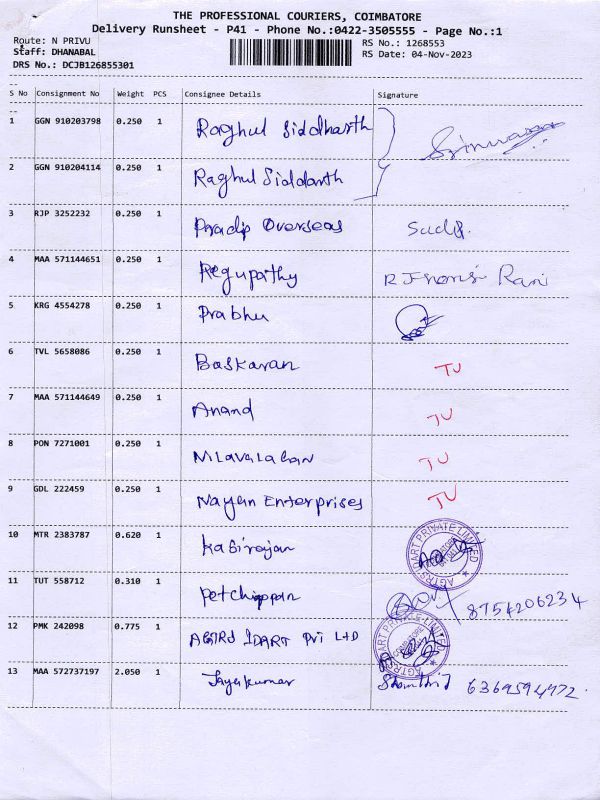 THE PROFESSIONAL COURIERS, COIMBATORE
Delivery Runsheet - P41 - Phone No.:0422-3505555 - Page No.:1
Route: N PRIVU
Staff: DHANABAL
DRS No.: DCJB126855301
RS No.: 1268553
RS Date: 04-Nov-2023
S No Consignment No Weight PCS Consignee Details Signature
1 GGN 910203798 0.250 1 Raghul Siddharth
2 GGN 910204114 0.250 1 Raghul Siddarth
3 RJP 3252232 0.250 1 Pradip Overseas
4 MAA 571144651 0.250 1 Regupathy Rani
5 KRG 4554278 0.250 1 Prabhu
6 TVL 5658086 0.250 1 Baskaran TU
7 MAA 571144649 0.250 1 Anand TU
8 PON 7271001 0.250 1 TU
9 GDL 222459 0.250 1 Nayan Enterprises TU
10 MTR 2383787 0.620 1 Kasirajan
11 TUT 558712 0.310 1 Petchiappan 8754206234
12 PMK 242098 0.775 1 AGTRSIDART Pvt LTD
13 MAA 572737197 2.050 1 Jayakumar 6369594972